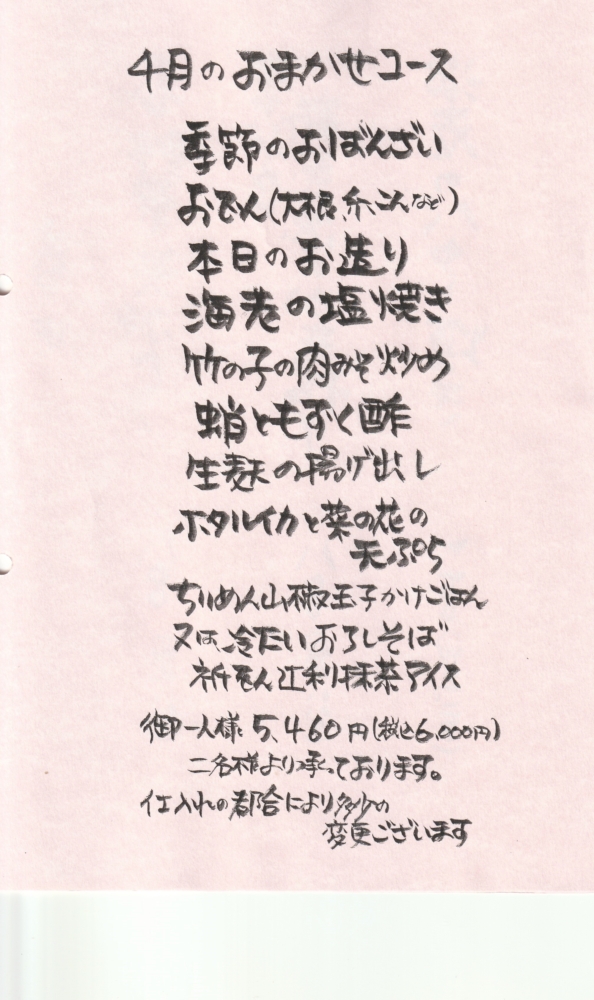 4月のおまかせコース
季節のおばんざい
おでん(大根、糸こんなど)
本日のお造り
海老の塩焼き
竹の子の肉みそ炒め
蛸ともずく酢
生麸の揚げ出し
ホタルイカと菜の花の
天ぷら
ちりめん山椒玉子かけごはん
又は、冷たいおろしそば
祇をん辻利抹茶アイス
御一人様 5,460円(税込6,000円)
二名様より承っております。
仕入れの都合により多少の
変更ございます